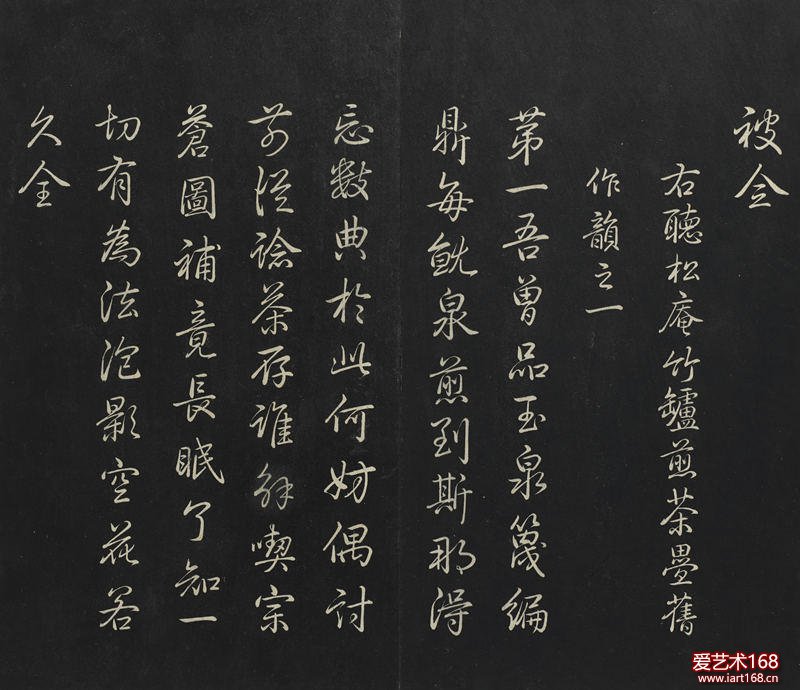 被全
右聽松庵竹罏煎茶疊舊
作韻之一
第一吾曽品玉泉篾編
鼎每就泉煎到斯那得
忘數典於此何妨偶討
前從諗茶存誰解喫宗
蒼圖補竟長眠了知一
切有為法泡影空花若
久全
爱艺术168
www.iart168.cn